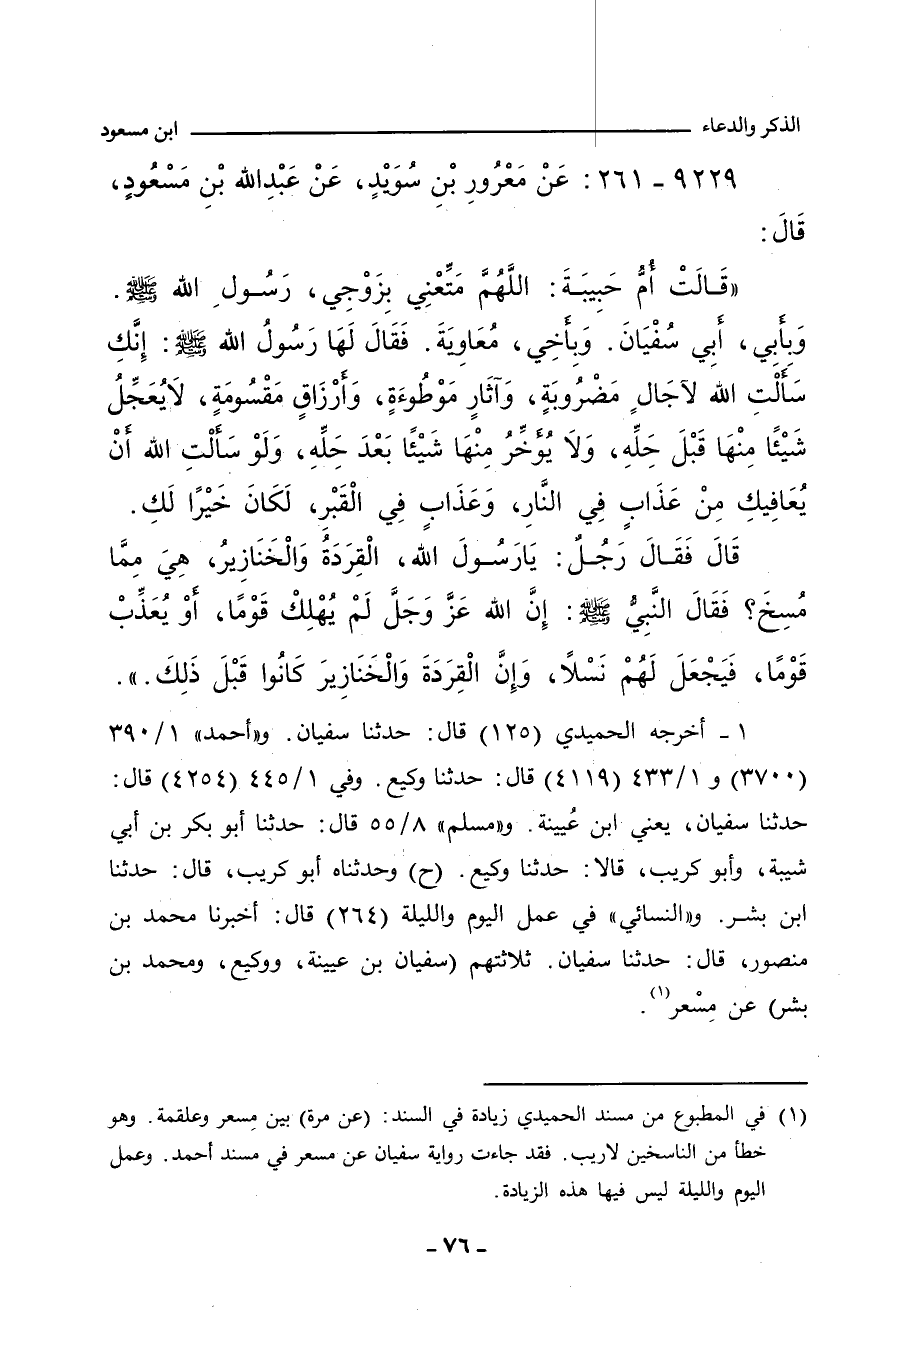 الذكر والدعاء ابن مسعود
٩٢٢٩ - ٢٦١: عَنْ مَعْرُورِ بْنِ سُوَيْدٍ، عَنْ عَبْدِالله بْنِ مَسْعُودٍ،
قَالَ:
«قَـالَتْ أُمُّ حَبِيبَـةَ: اللَّهُمَّ مَتِّعْنِي بِزَوْجِي، رَسُـولِ الله ﷺ.
وَبِأَبِي، أَبِي سُفْيَانَ. وَبِأَخِي، مُعَاوِيَةَ. فَقَالَ لَهَا رَسُولُ الله ﷺ: إِنَّكِ
سَأَلْتِ الله لآجَالٍ مَضْرُوبَةٍ، وَآثَارٍ مَوْطُوءَةٍ، وَأَرْزَاقٍ مَقْسُومَةٍ، لَايُعَجِّلُ
شَيْئًا مِنْهَا قَبْلَ حَلِّهِ، وَلَا يُؤَخِّرُ مِنْهَا شَيْئًا بَعْدَ حَلِّهِ، وَلَوْ سَأَلْتِ الله أَنْ
يُعَافِيكِ مِنْ عَذَابٍ فِي النَّارِ، وَعَذَابٍ فِي الْقَبْرِ، لَكَانَ خَيْرًا لَكِ.
قَالَ فَقَـالَ رَجُـلٌ: يَارَسُـولَ الله، الْقِرَدَةُ وَالْخَنَازِيرُ، هِيَ مِمَّا
مُسِخَ؟ فَقَالَ النَّبِيُّ ﷺ: إِنَّ الله عَزَّ وَجَلَّ لَمْ يُهْلِكْ قَوْمًا، أَوْ يُعَذِّبْ
قَوْمًا، فَيَجْعَلَ لَهُمْ نَسْلًا، وَإِنَّ الْقِرَدَةَ وَالْخَنَازِيرَ كَانُوا قَبْلَ ذَلِكَ.».
١ - أخرجه الحميدي (١٢٥) قال: حدثنا سفيان. و«أحمد» ٣٩٠/١
(٣٧٠٠) و ٤٣٣/١ (٤١١٩) قال: حدثنا وكيع. وفي ٤٤٥/١ (٤٢٥٤) قال:
حدثنا سفيان، يعني ابن عُيينة. و«مسلم» ٥٥/٨ قال: حدثنا أبو بكر بن أبي
شيبة، وأبو كريب، قالا: حدثنا وكيع. (ح) وحدثناه أبو كريب، قال: حدثنا
ابن بشـر. و«النسائي» في عمل اليوم والليلة (٢٦٤) قال: أخبرنا محمد بن
منصور، قال: حدثنا سفيان. ثلاثتهم (سفيان بن عيينة، ووكيع، ومحمد بن
بشر) عن مِسْعر(١).
(١) في المطبوع من مسند الحميدي زيادة في السند: (عن مرة) بين مِسعر وعلقمة. وهو
خطأ من الناسخين لاريب. فقد جاءت رواية سفيان عن مسعر في مسند أحمد. وعمل
اليوم والليلة ليس فيها هذه الزيادة.
- ٧٦ -